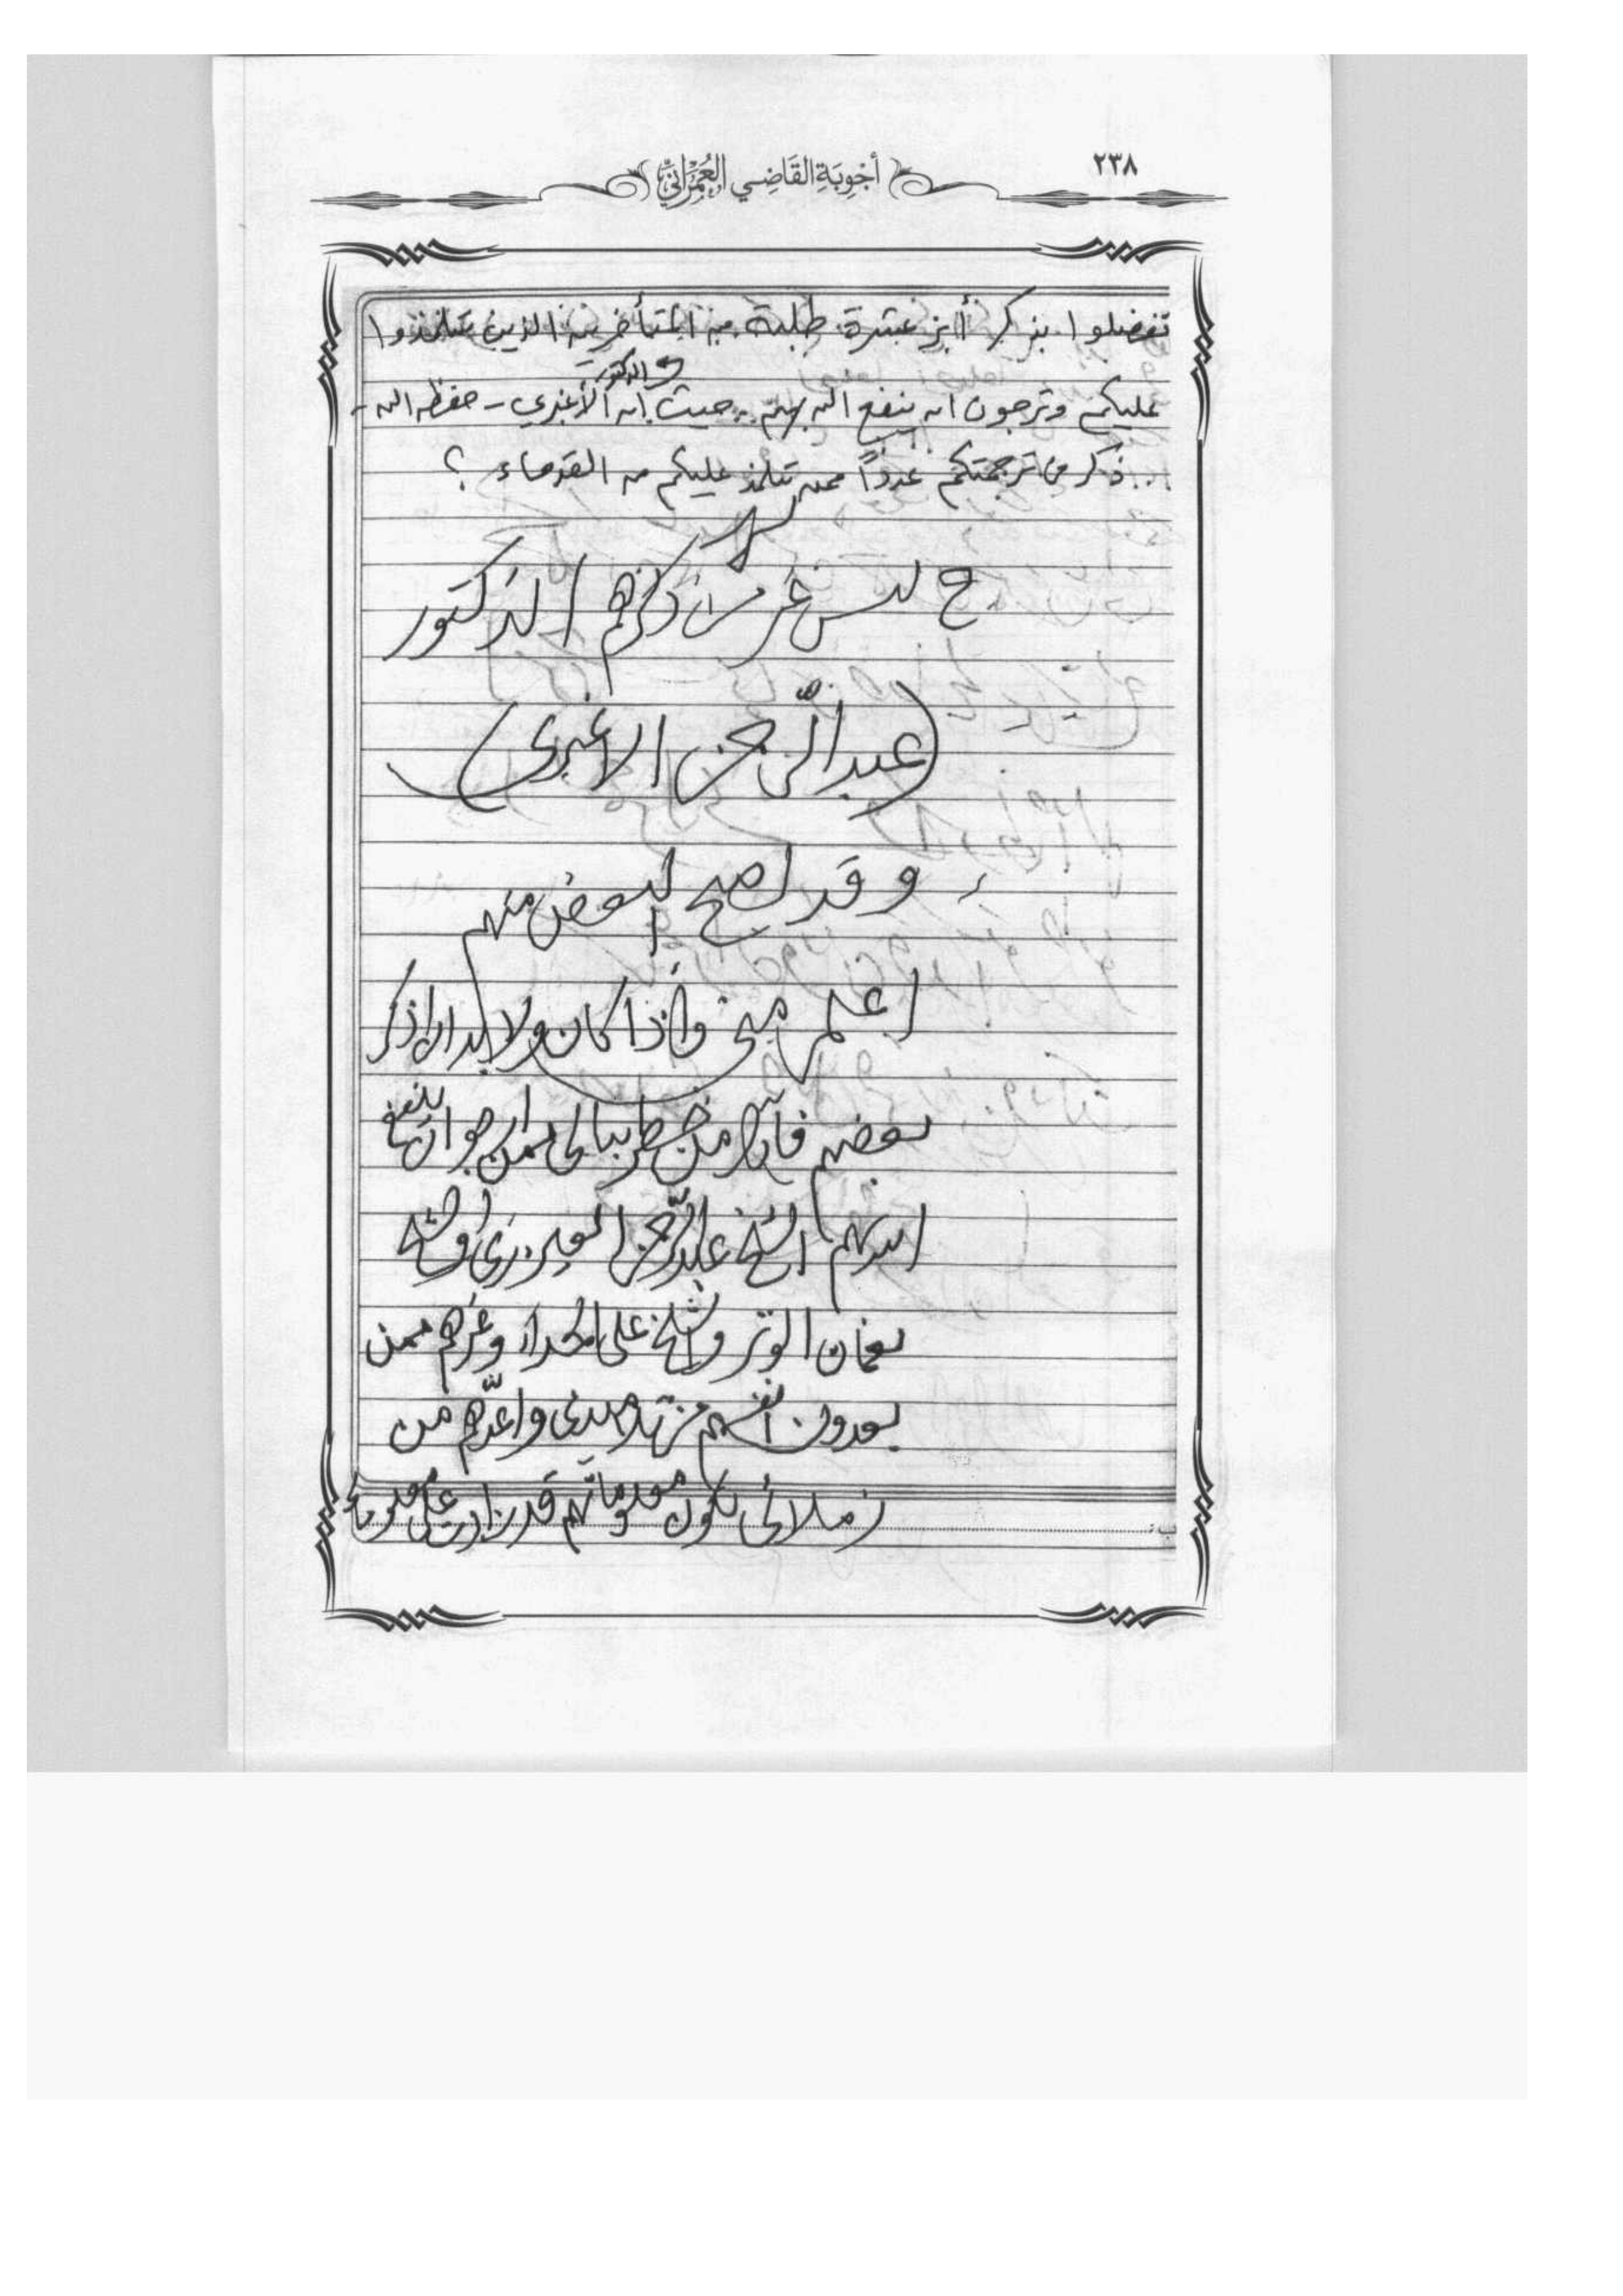 ٢٣٨
أَجْوِبَةِ القَاضِي العِمْرَانِيِّ
تفضلوا بذكر أبرز عشرة طلبة من المتأخرين الذين تتلمذوا
الدكتور
عليكم وترجون ان ينفع الله بهم .. حيث إن الأغبري - حفظه الله -
.. ذكر من ترجمتكم عدداً ممن تتلمذ عليكم من القدماء ؟
ج ليس غير من ذكرهم الدكتور
(عبد الرحمن الاغبري)
وقد اصبح البعض منهم
اعلم مني واذا كان ولا بد ان اذكر
بعضهم فان من خطر ببالي ممن ارجو ان ينفع
الله بهم الشيخ عبد الرحمن والشيخ
نعمان الوتر والشيخ علي وغيرهم ممن
يعدون انفسهم من تلاميذي واعدّهم من
زملائي لكون معلوماتهم قد زادت على معلوماتي